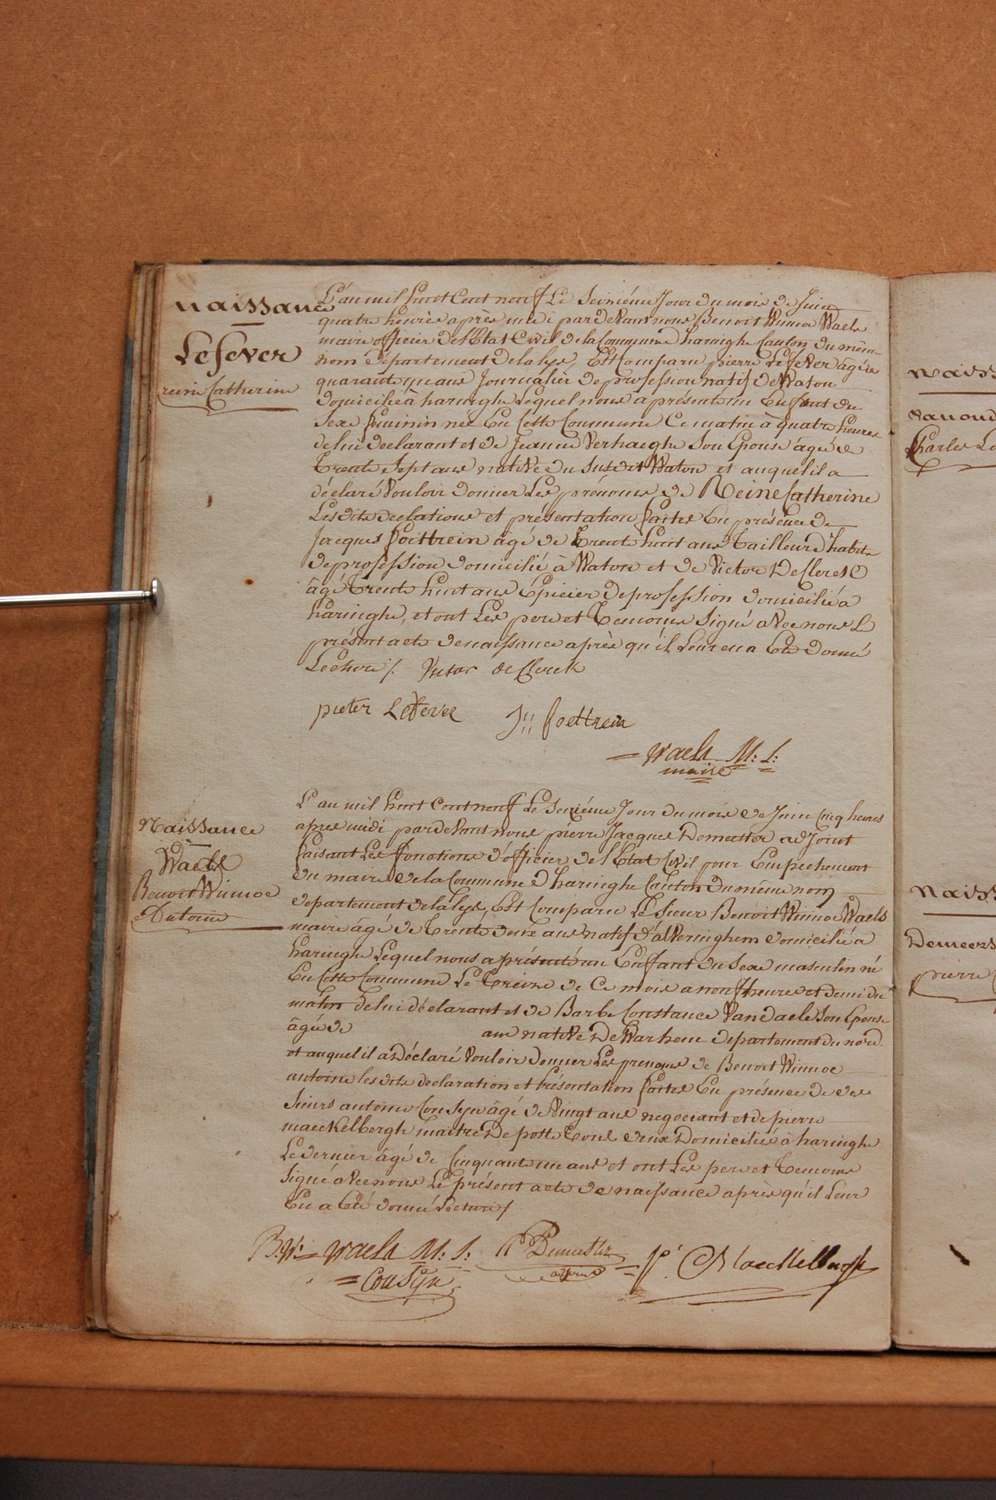 naissance
Lefever
reine Catherine
L'an mil huit Cent neuf Le Seizième Jour du mois de Juin
quatre heures après midi pardevant nous Benoit Winnoc Waels
maire officier de l'Etat Civil de la Commune d'haringhe Canton du même
nom departement de la lys Est Comparu pierre Lefever âgé de
quarante ans Journalier de profession natif de Waton
domicilié à haringhe Lequel nous a présenté un Enfant du
Sexe feminin née En Cette Commune Ce matin à quatre heures
de lui declarant et de Jeanne Verhaeghe Son Epouse âgée de
Trente Sept ans native du Susdit Waton et auquel il a
déclaré Vouloir donner Les prénoms de Reine Catherine
Les dites declations et présentation faites En présence de
Jacques Poittrein âgé de trente huit ans Tailleur d'habits
de profession domicilié à Waton et de Victor De Clerck
âgé Trente huit ans Épicier de profession domicilié à
haringhe, et ont Les pere et Temoins Signé avec nous Le
présent acte de naissance après qu'il Leur en a Eté donné
Lecture /. Victor de Clerck
pieter Lefever
J: Poittrein
Waels M: S:
maire
Naissance
Waels
Benoit Winnoc
Antoine
L'an mil huit Cent neuf Le Seizième Jour du mois de Juin Cinq heures
après midi pardevant nous pierre Jacques Demester adjoint
faisant Les fonctions d'officier de l'Etat Civil pour Empechement
du maire de la Commune D'haringhe Canton du même nom
departement de la lys, Est Comparu Le Sieur Benoit Winnoc Waels
maire âgé de Trente deux ans natif d'alveringhem domicilié à
haringhe Lequel nous a présenté un Enfant du Sexe masculin né
En Cette Commune Le Treize de Ce mois a neuf heures et demi du
matin de lui déclarant et de Barbe Constance Vandaele Son Epouse
âgée de ans native De Warhem departement du nord
et auquel il a Déclaré vouloir donner Les prenoms de Benoit Winnoc
antoine les dites declaration et présentation faites En présence de
Sieurs antoine Cousyn âgé de Vingt ans negociant et de pierre
maeckelbergh maitre De poste tous deux Domiciliés à haringhe
Le dernier âgé de Cinquante un ans et ont Les pere et Temoins
Signé avec nous Le présent acte de naissance après qu'il Leur
En a Eté donné Lecture /
B: W: Waels M: S:
P Demester
Cousyn
P. Maeckelbergh
Naiss
Vanoud
Charles Lo
Naiss
Demeers
pierre